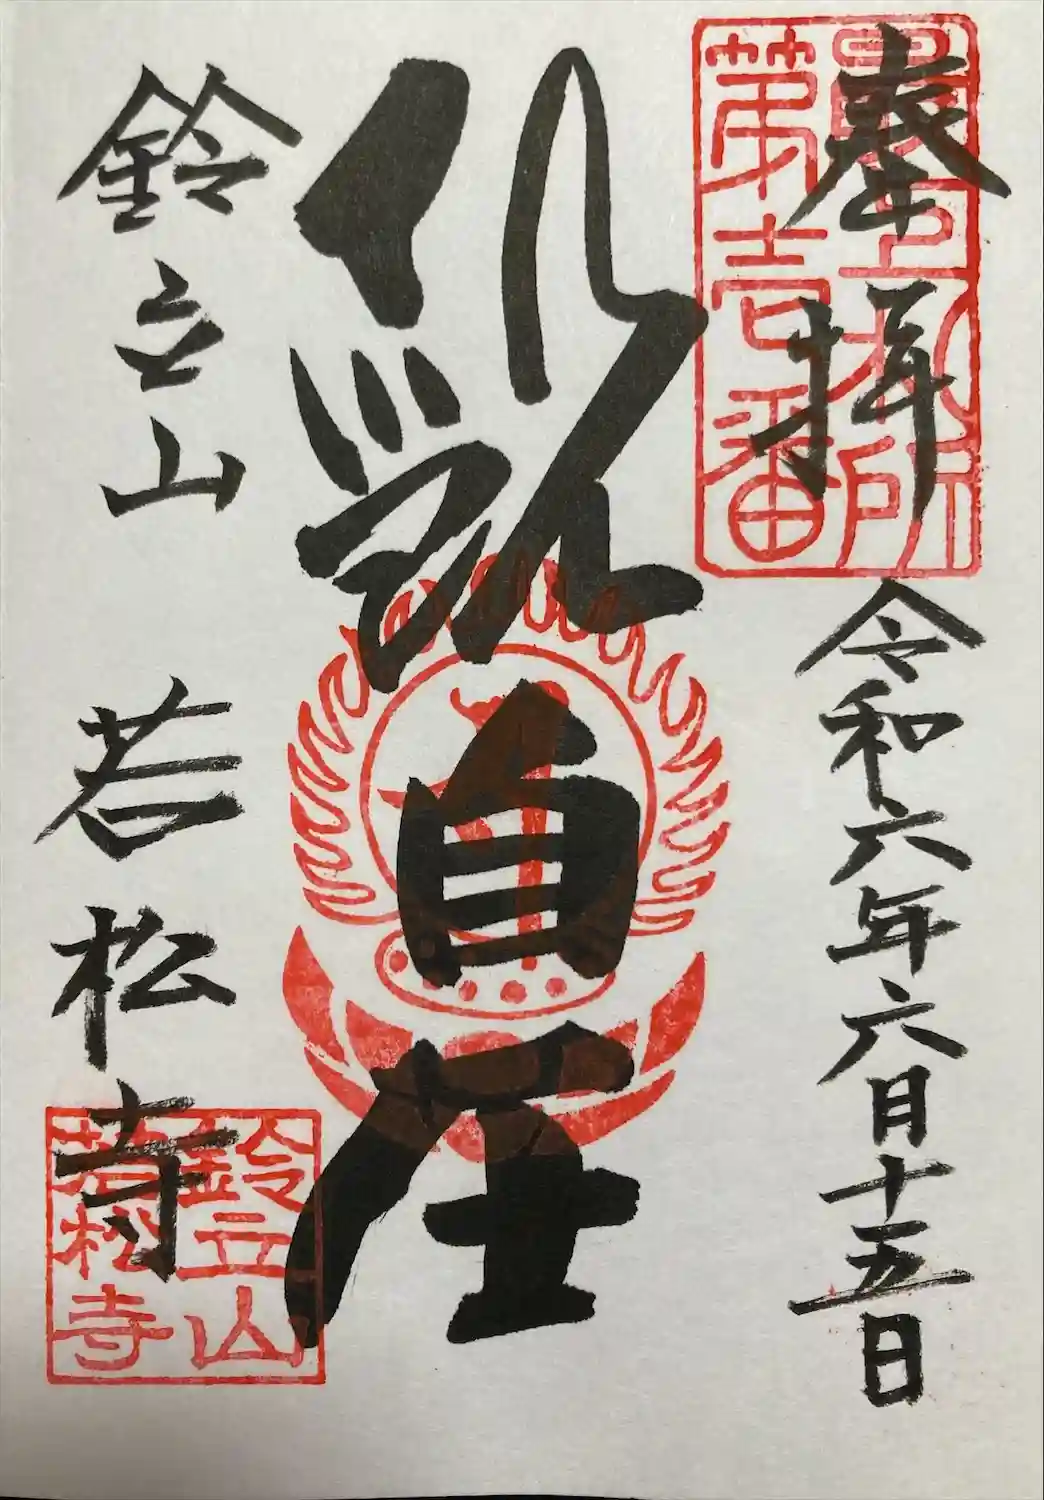 奉拝
最上札所
第壱番
令和六年六月十五日
観自在
鈴立山 若松寺
鈴立山
若松寺